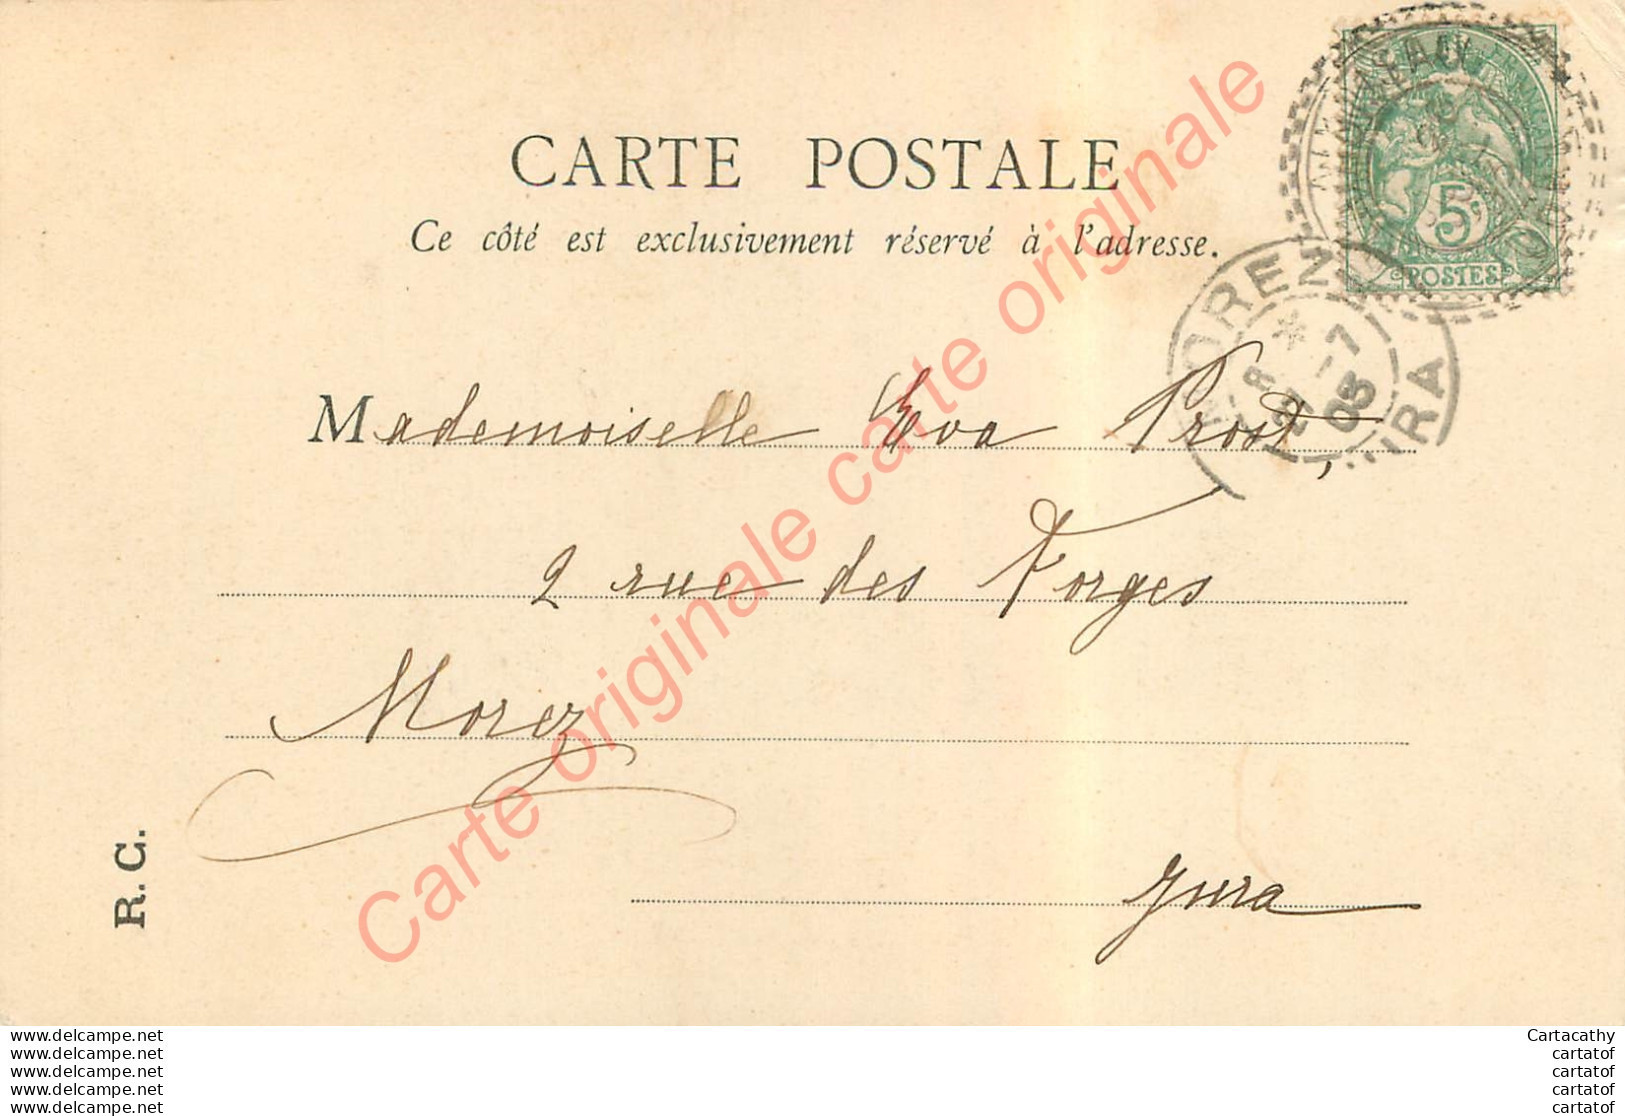 CARTE POSTALE
Ce côté est exclusivement réservé à l'adresse.
5
POSTES
MOREZ
JURA
* 
-7
05
Mademoiselle Eva Prost,
2 rue des Forges
Morez
Jura
R. C.
Carte originale carte originale
www.delcampe.net
www.delcampe.net
www.delcampe.net
www.delcampe.net
www.delcampe.net
Cartacathy
cartatof
cartatof
cartatof
cartatof